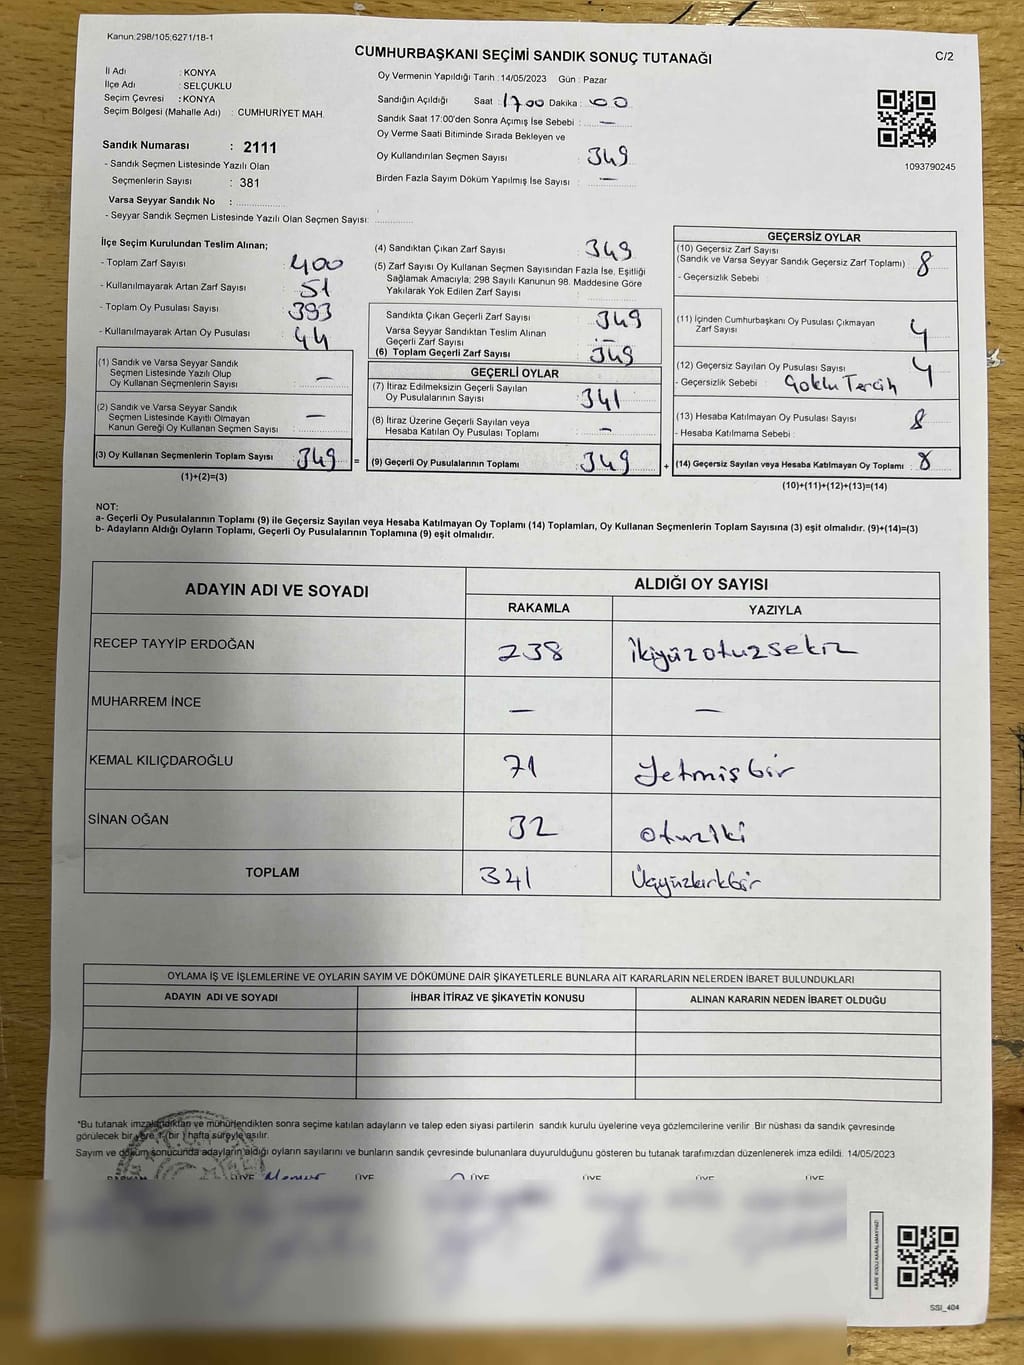 Kanun:298/105;6271/18-1
CUMHURBAŞKANI SEÇİMİ SANDIK SONUÇ TUTANAĞI
C/2
İl Adı : KONYA
İlçe Adı : SELÇUKLU
Seçim Çevresi : KONYA
Seçim Bölgesi (Mahalle Adı) : CUMHURİYET MAH.
Sandık Numarası : 2111
- Sandık Seçmen Listesinde Yazılı Olan
Seçmenlerin Sayısı : 381
Varsa Seyyar Sandık No :
- Seyyar Sandık Seçmen Listesinde Yazılı Olan Seçmen Sayısı:
Oy Vermenin Yapıldığı Tarih : 14/05/2023 Gün : Pazar
Sandığın Açıldığı Saat : 1700 Dakika : 00
Sandık Saat 17:00'den Sonra Açımış İse Sebebi : —
Oy Verme Saati Bitiminde Sırada Bekleyen ve
Oy Kullandırılan Seçmen Sayısı 349
Birden Fazla Sayım Döküm Yapılmış İse Sayısı : —
1093790245
İlçe Seçim Kurulundan Teslim Alınan;
- Toplam Zarf Sayısı 400
- Kullanılmayarak Artan Zarf Sayısı 51
- Toplam Oy Pusulası Sayısı 393
- Kullanılmayarak Artan Oy Pusulası 44
(1) Sandık ve Varsa Seyyar Sandık
Seçmen Listesinde Yazılı Olup
Oy Kullanan Seçmenlerin Sayısı : —
(2) Sandık ve Varsa Seyyar Sandık
Seçmen Listesinde Kayıtlı Olmayan
Kanun Gereği Oy Kullanan Seçmen Sayısı : —
(3) Oy Kullanan Seçmenlerin Toplam Sayısı : 349 =
(1)+(2)=(3)
(4) Sandıktan Çıkan Zarf Sayısı 349
(5) Zarf Sayısı Oy Kullanan Seçmen Sayısından Fazla İse, Eşitliği
Sağlamak Amacıyla; 298 Sayılı Kanunun 98. Maddesine Göre
Yakılarak Yok Edilen Zarf Sayısı
Sandıkta Çıkan Geçerli Zarf Sayısı : 349
Varsa Seyyar Sandıktan Teslim Alınan
Geçerli Zarf Sayısı : —
(6) Toplam Geçerli Zarf Sayısı : 349
GEÇERLİ OYLAR
(7) İtiraz Edilmeksizin Geçerli Sayılan
Oy Pusulalarının Sayısı : 341
(8) İtiraz Üzerine Geçerli Sayılan veya
Hesaba Katılan Oy Pusulası Toplamı : —
(9) Geçerli Oy Pusulalarının Toplamı : 349 +
GEÇERSİZ OYLAR
(10) Geçersiz Zarf Sayısı
(Sandık ve Varsa Seyyar Sandık Geçersiz Zarf Toplamı) : 8
- Geçersizlik Sebebi
(11) İçinden Cumhurbaşkanı Oy Pusulası Çıkmayan
Zarf Sayısı 4
(12) Geçersiz Sayılan Oy Pusulası Sayısı : 4
- Geçersizlik Sebebi : Çoklu Tercih
(13) Hesaba Katılmayan Oy Pusulası Sayısı : 8
- Hesaba Katılmama Sebebi :
(14) Geçersiz Sayılan veya Hesaba Katılmayan Oy Toplamı : 8
(10)+(11)+(12)+(13)=(14)
NOT:
a- Geçerli Oy Pusulalarının Toplamı (9) ile Geçersiz Sayılan veya Hesaba Katılmayan Oy Toplamı (14) Toplamları, Oy Kullanan Seçmenlerin Toplam Sayısına (3) eşit olmalıdır. (9)+(14)=(3)
b- Adayların Aldığı Oyların Toplamı, Geçerli Oy Pusulalarının Toplamına (9) eşit olmalıdır.
ADAYIN ADI VE SOYADI
ALDIĞI OY SAYISI
RAKAMLA YAZIYLA
RECEP TAYYİP ERDOĞAN 238 İkiyüzotuzsekiz
MUHARREM İNCE — —
KEMAL KILIÇDAROĞLU 71 Yetmişbir
SİNAN OĞAN 32 otuziki
TOPLAM 341 Üçyüzkırkbir
OYLAMA İŞ VE İŞLEMLERİNE VE OYLARIN SAYIM VE DÖKÜMÜNE DAİR ŞİKAYETLERLE BUNLARA AİT KARARLARIN NELERDEN İBARET BULUNDUKLARI
ADAYIN ADI VE SOYADI İHBAR İTİRAZ VE ŞİKAYETİN KONUSU ALINAN KARARIN NEDEN İBARET OLDUĞU
*Bu tutanak imzalandıktan ve mühürlendikten sonra seçime katılan adayların ve talep eden siyasi partilerin sandık kurulu üyelerine veya gözlemcilerine verilir. Bir nüshası da sandık çevresinde
görülecek bir yere 1 (bir) hafta süreyle asılır.
Sayım ve döküm sonucunda adayların aldığı oyların sayılarını ve bunların sandık çevresinde bulunanlara duyurulduğunu gösteren bu tutanak tarafımızdan düzenlenerek imza edildi. 14/05/2023
BAŞKAN ÜYE Memur ÜYE ÜYE ÜYE ÜYE ÜYE
KARE KODU KARALAMAYINIZ!
SSI_404